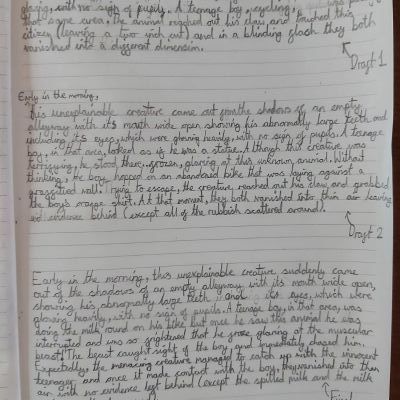 glaring, with no sign of pupils. A teenage boy, cycling,
that same area, the animal reached out his claw, and touched this
citizen (leaving a two inch cut) and in a blinding flash they both
vanished into a different dimension.
Draft 1
Early in the morning,
This unexplainable creature came out from the shadows of an empty
alleyway with its mouth wide open showing his abnormally large teeth and
including its eyes, which were glowing heavily, with no sign of pupils. A teenage
boy, in that area, looked as if he was a statue. Although this creature was
terrifying, he stood there, frozen, glaring at this unknown animal. Without
thinking, the boy hopped on an abandoned bike that was laying against a
graffitied wall. Trying to escape, the creature reached out his claw and grabbed
the boy's orange shirt. At that moment, they both vanished into thin air leaving
no evidence behind (except all of the rubbish scattered around).
Draft 2
Early in the morning, this unexplainable creature suddenly came
out of the shadows of an empty alleyway with its mouth wide open,
showing his abnormally large teeth and its eyes, which were
glowing heavily, with no sign of pupils. A teenage boy, in that area, was
doing the milk round on his bike but once he saw this animal he was
interrupted and was so frightened that he froze, glaring at the muscular
beast. The beast caught sight of the boy and immediately chased him.
Expectedly, the menacing creature managed to catch up with the innocent
teenager and once it made contact with the boy, they vanished into thin
air with no evidence left behind (except the spilled milk and the milk
Final